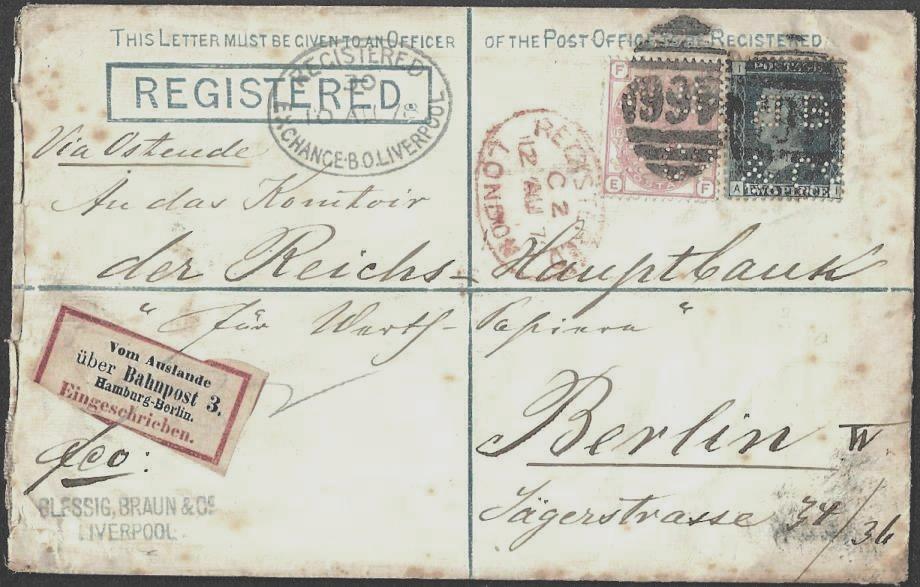 THIS LETTER MUST BE GIVEN TO AN OFFICER OF THE POST OFFICE TO BE REGISTERED
REGISTERED
REGISTERED
EXCHANGE·B.O.LIVERPOOL
Via Ostende
An das Komtoir
der Reichs-Hauptbank
"für Werth-Papiere"
Berlin W
Jägerstrasse 34/36
fco:
F
E
F
I
A
I
TWO PENCE
REGISTERED
LONDON
C2
12 AU 7
Vom Auslande
über Bahnpost 3.
Hamburg-Berlin.
Eingeschrieben.
BLESSIG, BRAUN & Co
LIVERPOOL.